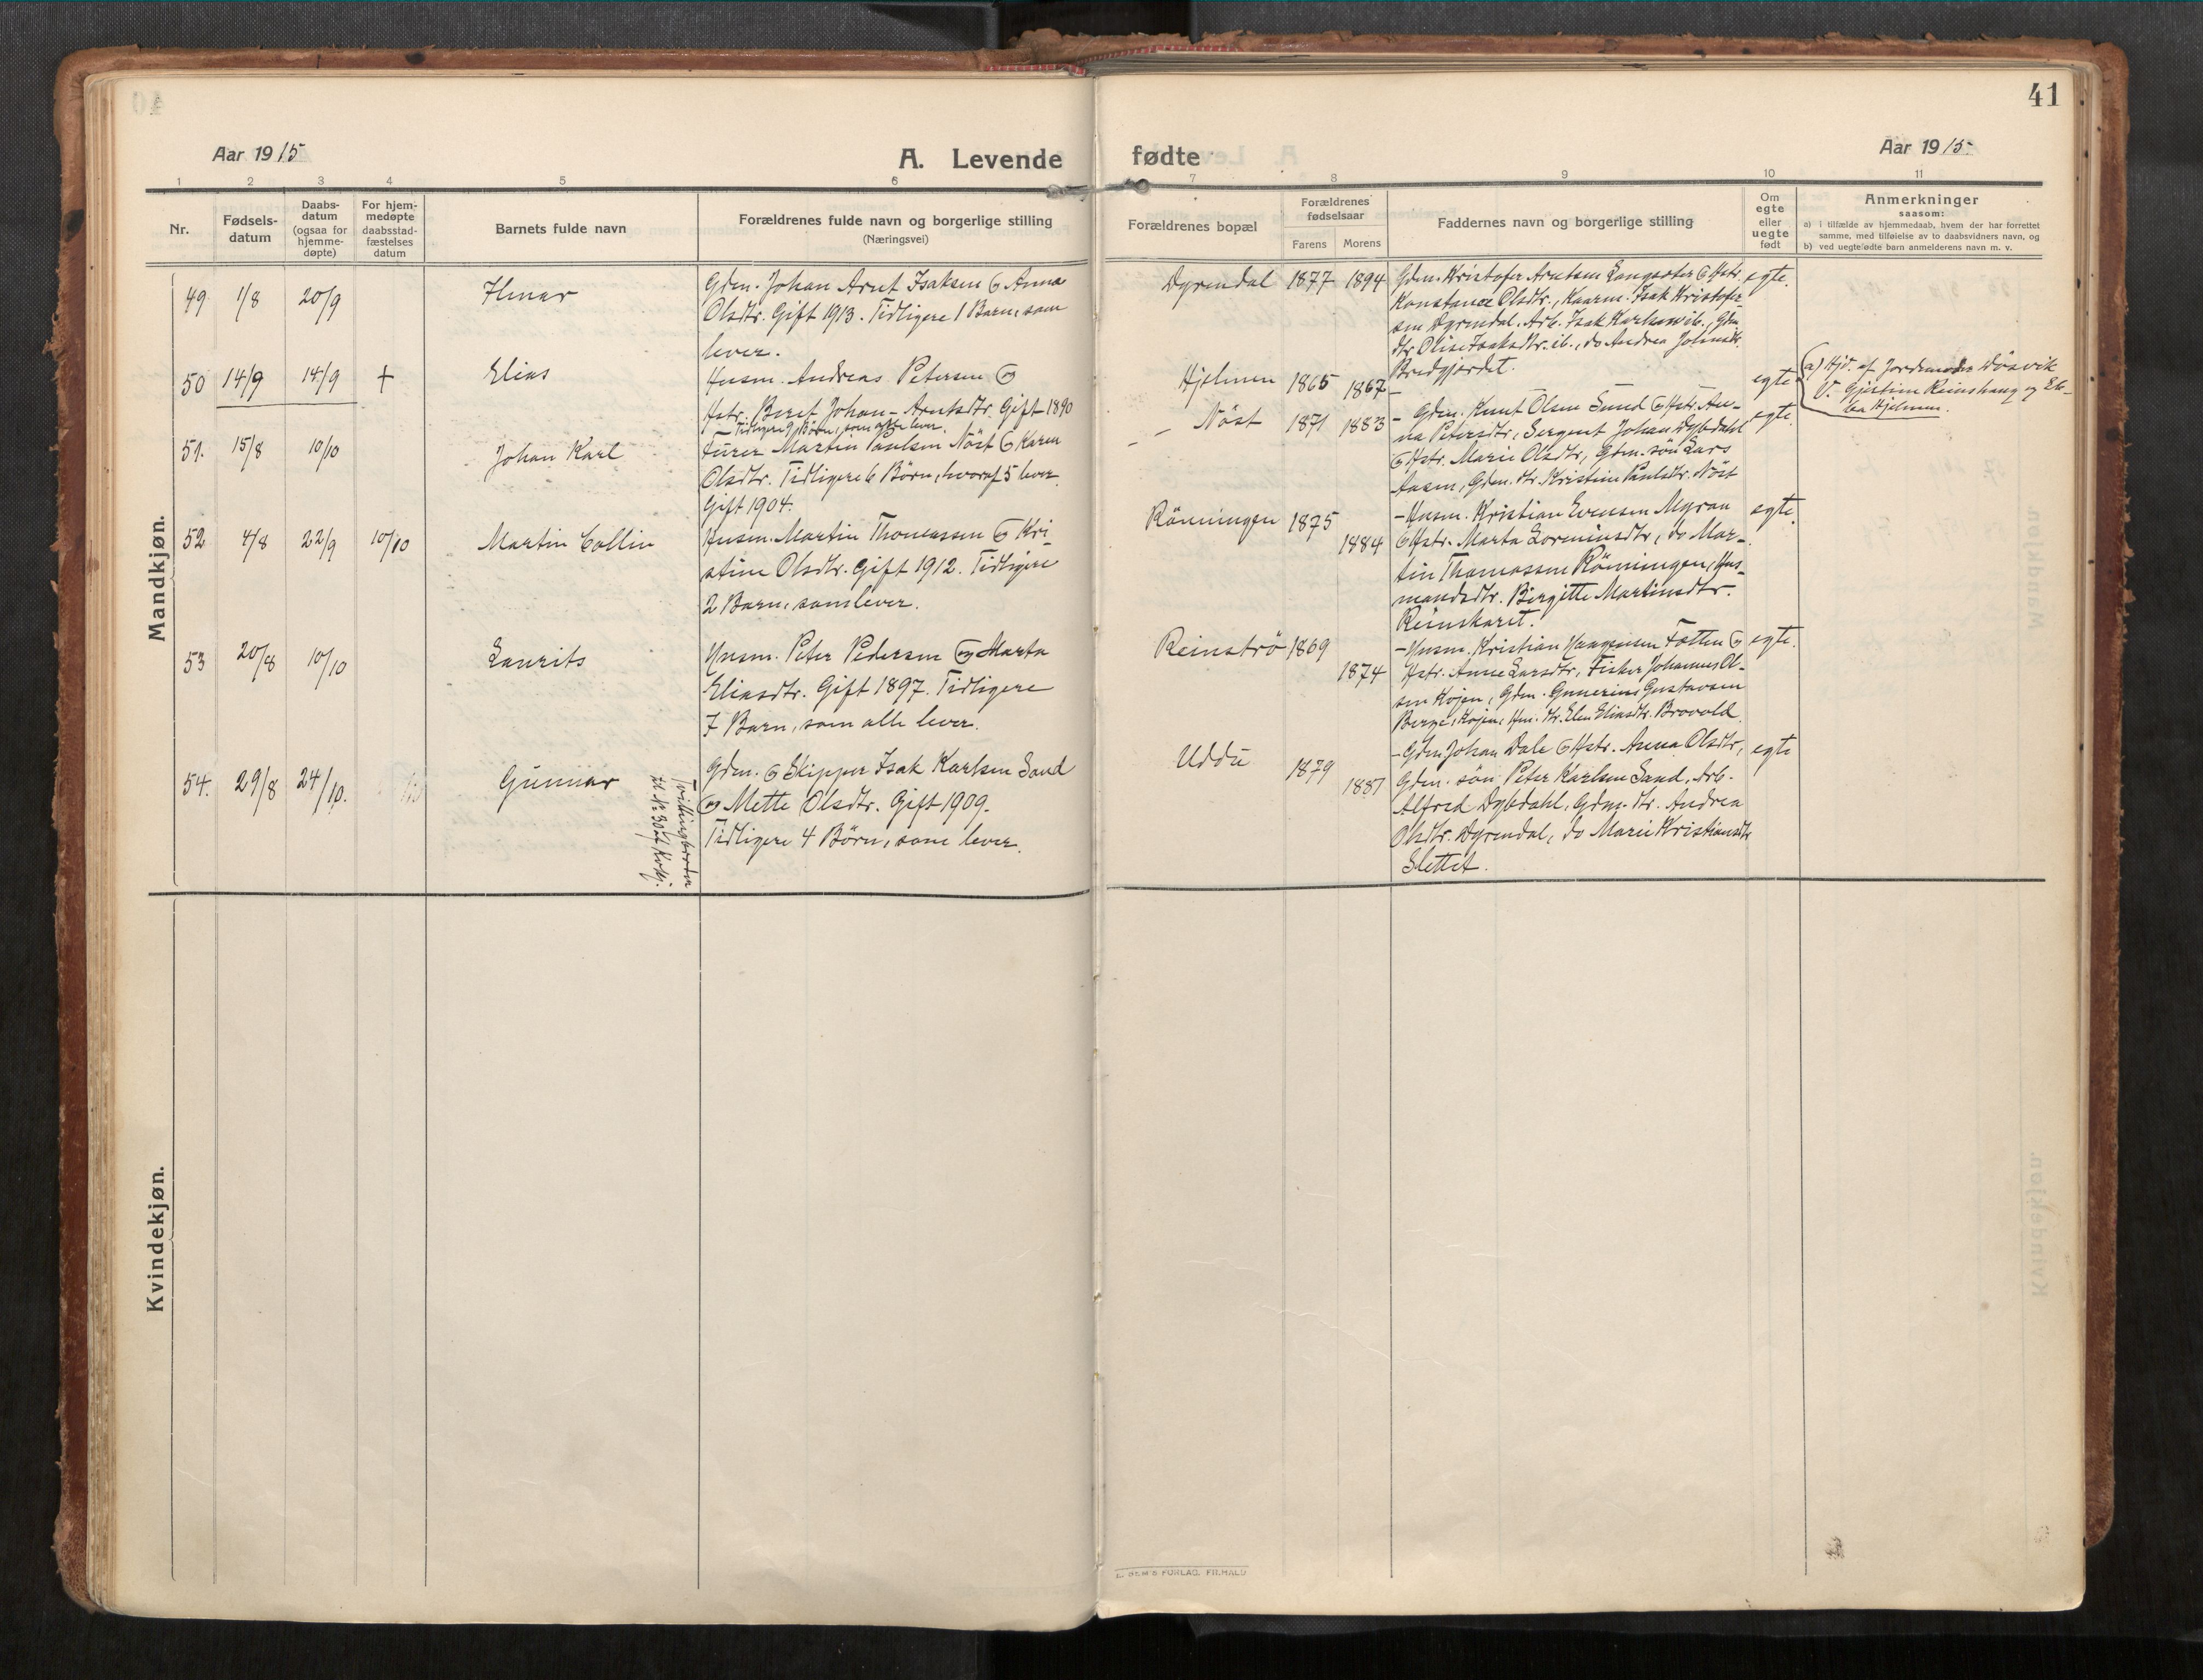 41
Aar 1915
A. Levende
fødte
Aar 1915
1 2 3 4 5 6 7 8 9 10 11
Nr.
Fødsels-
datum
Daabs-
datum
(ogsaa for
hjemme-
døpte)
For hjem-
medøpte
daabsstad-
fæstelses
datum
Barnets fulde navn
Forældrenes fulde navn og borgerlige stilling
(Næringsvei)
Forældrenes bopæl
Forældrenes
fødselsaar
Farens Morens
Faddernes navn og borgerlige stilling
Om
egte
eller
uegte
født
Anmerkninger
saasom:
a) i tilfælde av hjemmedaab, hvem der har forrettet
samme, med tilføielse av to daabsvidners navn, og
b) ved uegte fødte barn anmelderens navn m. v.
Mandkjøn.
49. 1/8 20/9
Ilmar
Gdm. Johan Arnt Isaksen & Anna
Olsdtr. Gift 1913. Tidligere 1 Barn, som
lever.
Dyrendal 1877 1894
Gdm. Kristofer Arntsen Langsæter & Hstr.
Konstance Olsdtr., Kaarm. Isak Kristofer-
sen Dyrendal. Arb. Isak Karlsen ib., Gdm.
dtr. Olise Isaksdtr. ib., do Andrea Johnsdtr.
Bredgjerdet.
egte.
50 14/9 14/9 +
Elias
Husm. Andreas Petersen og
Hstr. Beret Johan-Arntsdtr. Gift 1890
Tidligere 9 Børn, som alle lever.
Hjelmen 1865 1867
–
egte
(a) Hjd. af Jordemoder Døsvik
V. Gjertine Reinshaug og El-
len Hjelmen.
51. 15/8 10/10
Johan Karl
Furer Martin Paulsen Nöst & Karen
Olsdtr. Tidligere 6 Börn, hvoraf 5 lever.
Gift 1904.
– – Nöst 1871 1883
– Gdm. Knut Olsen Sund & Hstr. An-
na Petersdtr., Sergent Johan Dybdahl
& Hstr. Marie Olsdtr., Gdm. sön Lars
Aasen, Gdm. dtr. Kristine Paulsdtr. Nöst
egte.
52 4/8 22/9 10/10
Martin Collin
Husm. Martin Thomassen & Kri-
stine Olsdtr. Gift 1912. Tidligere
2 Barn, som lever.
Rönningen 1875
1884
– Husm. Kristian Evensen Myran
& Hstr. Marta Lorninsdtr., do Mar-
tin Thomassen Rönningen, Hus-
mandsdtr. Birgitte Martinsdtr.
Reinskaret.
egte.
53 20/8 10/10
Laurits
Husm. Peter Pedersen og Marta
Eliasdtr. Gift 1897. Tidligere
7 Barn, som alle lever.
Reinströ 1869
1874
– Husm. Kristian Haagensen Fætten og
Hstr. Anne Larsdtr., Fisker Johannes Ol-
sen Köjen, Gdm. Gunerius Gustavsen
Berge, Köjen, Hm. dtr. Elen Eliasdtr. Brovold.
egte.
54. 29/8 24/10.
Gunnar
Tvillingbroder
til № 30 af Kvkj.
Gdm. & Skipper Isak Karlsen Sand
og Mette Olsdtr. Gift 1909.
Tidligere 4 Börn, som lever.
Uddu
1879
1887
– Gdm. Johan Dale & Hstr. Anna Olsdtr.,
Gdm. sön Peter Karlsen Sand, Arb.
Alfred Dybdahl, Gdm. dtr. Andrea
Olsdtr. Dyrendal, do Marie Kristiansdtr.
Slettet.
egte
Kvindekjøn.
E. SEM'S FORLAG. FR.HALD